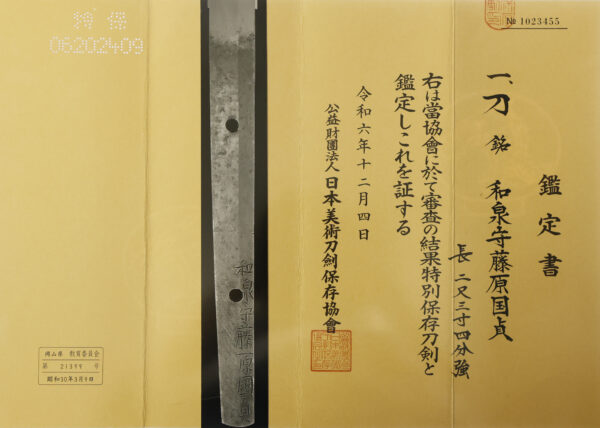 № 1023455
鑑定書
一、刀 銘 和泉守藤原国貞
長 二尺三寸四分強
右は當協會に於て審査の結果特別保存刀剣と
鑑定しこれを証する
令和六年十二月四日
公益財團法人 日本美術刀劍保存協會
和泉守藤原國貞
特保
06202409
岡山県 教育委員会
第 21399 号
昭和30年3月9日